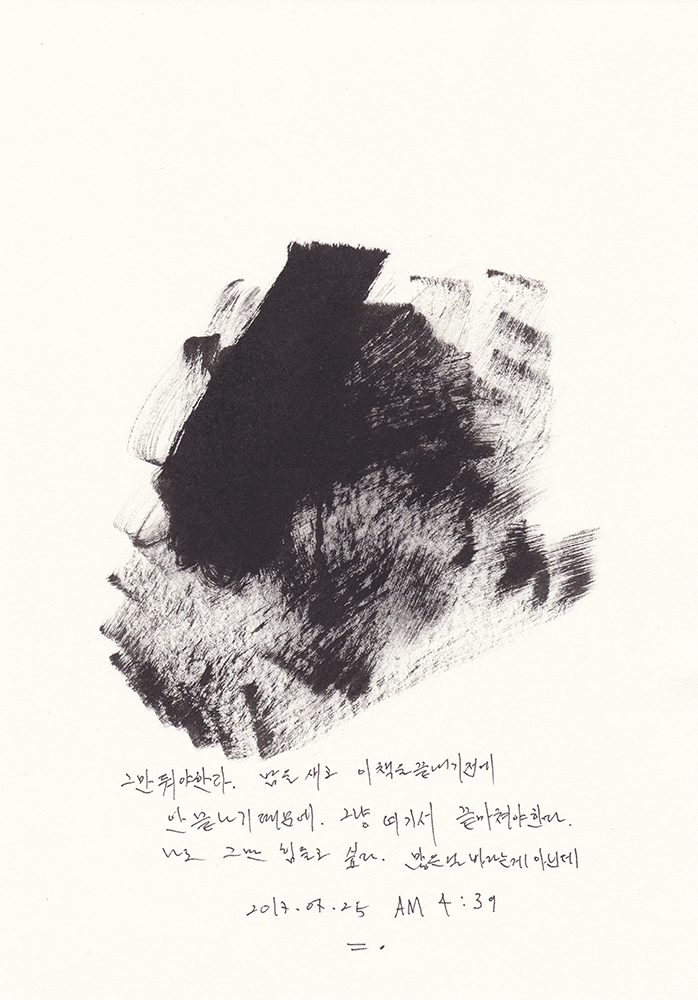 그만 둬야한다. 밤을 새도 이 책을 끝내기전에
안 끝나기 때문에. 그냥 여기서 끝마쳐야한다.
나도 그만 힘들고 싶다. 많은걸 바라는게 아닌데
2017.07.25 AM 4:39